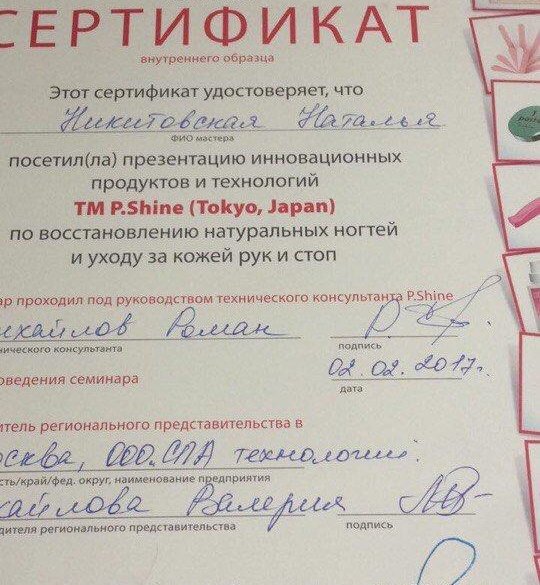 СЕРТИФИКАТ
внутреннего образца
Этот сертификат удостоверяет, что
Никитовская Наталья
ФИО мастера
посетил(ла) презентацию инновационных
продуктов и технологий
ТМ P.Shine (Tokyo, Japan)
по восстановлению натуральных ногтей
и уходу за кожей рук и стоп
ар проходил под руководством технического консультанта P.Shine
ихайлов Роман
нического консультанта
подпись
02.02.2017г.
оведения семинара
дата
итель регионального представительства в
осква, ООО.СПА технологии.
сть/край/фед. округ, наименование предприятия
хайлова Валерия
одителя регионального представительства
подпись